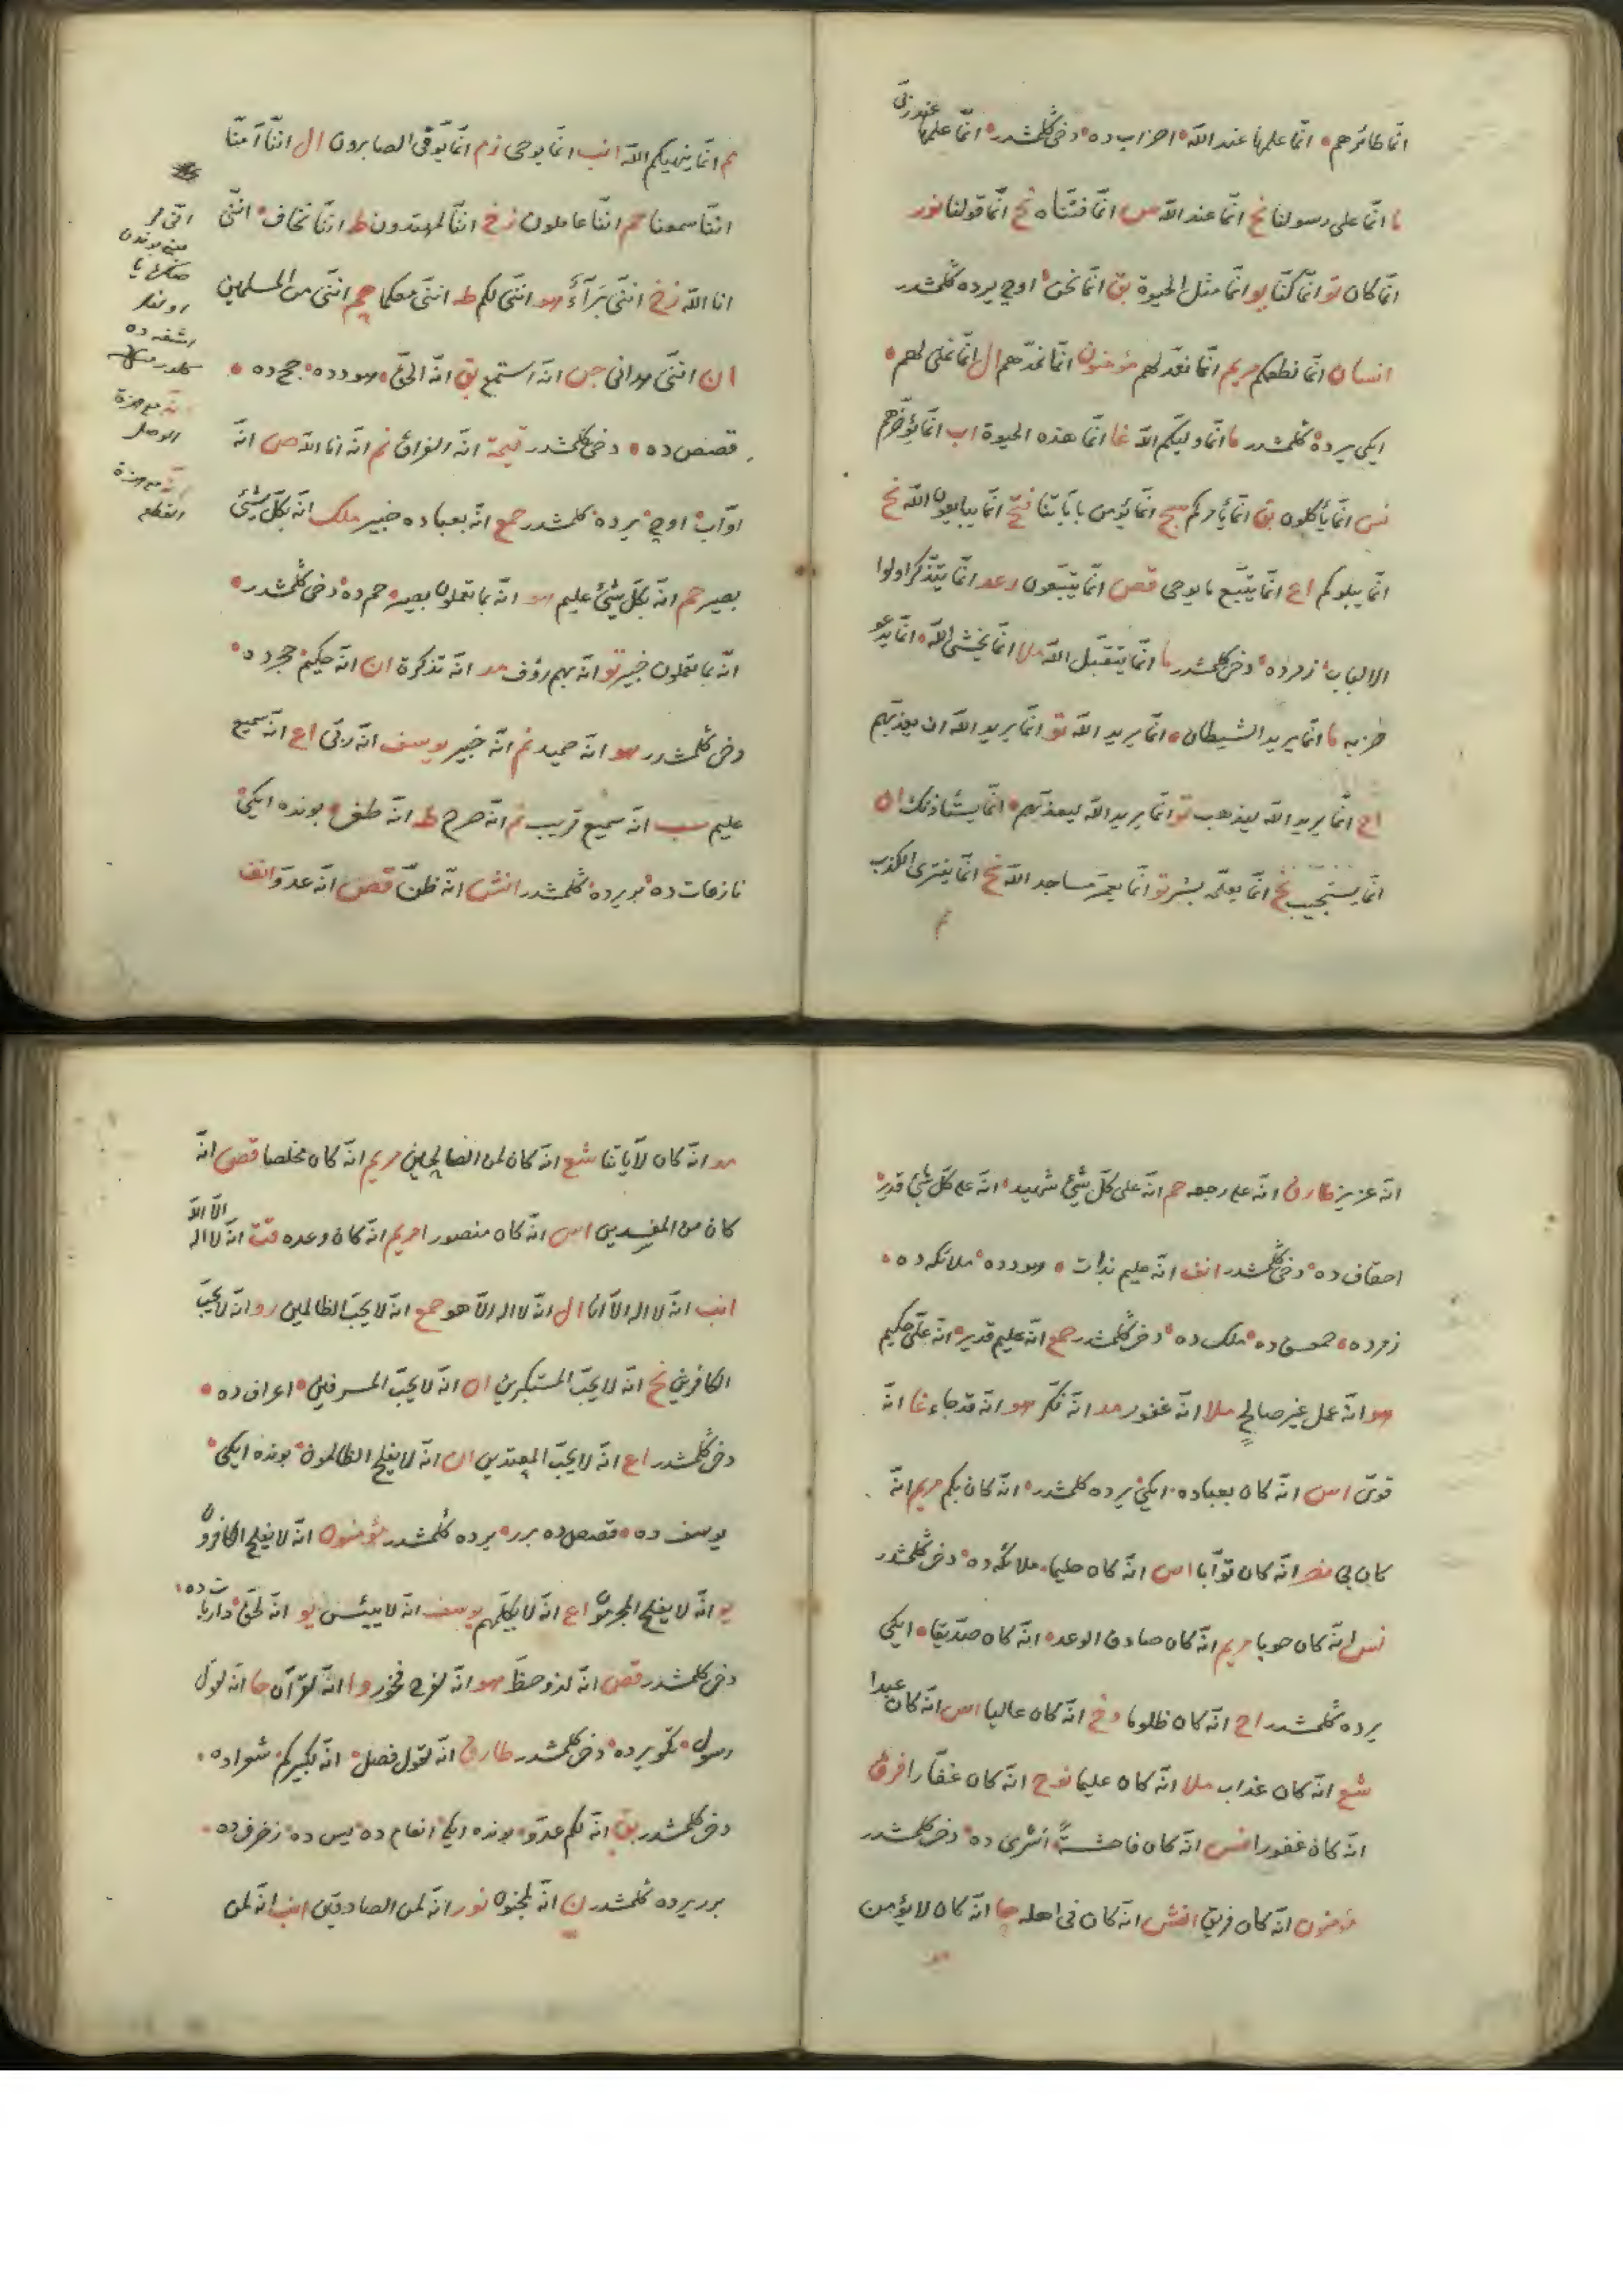 انّما طائرهم انّما علمها عند اللّه احزاب ده دخى گلمشدر انّما علمها عند ربّى
ما انّما على رسولنا نح انّما عند اللّه ص انّما فتنّاه نح انّما قولنا نور
انّما كان تو انّما كنّا يو انّما مثل الحيوة بق انّما نحن اوچ يرده گلمشدر
انسان انّما نطعمكم مريم انّما نعدّ لهم مؤمنون انّما نمدّهم ال انّما نملى لهم
ايكى يرده گلمشدر ما انّما وليّكم اللّه غا انّما هذه الحيوة اب انّما يؤخّرهم
نس انّما يأكلون بق انّما يأمركم سج انّما يؤمن بآياتنا فتح انّما يبايعون اللّه نح
انّما يبلوكم اع انّما يتّبع ما يوحى قص انّما يتّبعون رعد انّما يتذكّر اولوا
الالباب زمر ده دخى گلمشدر ما انّما يتقبّل اللّه ملا انّما يخشى اللّه انّما يدعو
حزبه ما انّما يريد الشيطان انّما يريد اللّه تو انّما يريد اللّه ان يعذبهم
اح انّما يريد اللّه ليذهب تو انّما يريد اللّه ليعذبهم انّما يستأذنك ان
انّما يستجيب نح انّما يعلّمه بشر تو انّما يعمر مساجد اللّه نح انّما يفترى الكذب
م
م انّما ينهيكم اللّه انب انّما يوحى زم انّما يوفّى الصابرون ال انّنا آمنّا
انّنا سمعنا حم انّنا عاملون زخ انّنا لمهتدون ط انّنا نخاف انّنى
انا اللّه زخ انّنى برآء هو انّنى لكم طه انّنى معكما حم انّنى من المسلمين
ان انّنى هدانى جن انّه استمع بق انّه الحقّ هود ده حج ده
قصص ده دخى گلمشدر قيمة انّه الفراق نم انّه انا اللّه ص انّه
اوّاب اوچ يرده گلمشدر حمع انّه بعباده خبير ملك انّه بكلّ شئ
بصير حم انّه بكلّ شئ عليم هو انّه بما تعملون بصير حم ده دخى گلمشدر
انّه بما تعملون خبير تو انّه بهم رؤف مد انّه تذكرة ان انّه حكيم حجر ده
دخى گلمشدر هو انّه حميد نم انّه خبير يوسف انّه ربّى اع انّه سميع
عليم سب انّه سميع قريب نم انّه صرح ط انّه طغى بونده ايكى
نازعات ده بر يرده گلمشدر انش انّه ظنّ قصص انّه عدوّ انف
مع همزة
الوصل
مع همزة
القطع
انّه عزيز طارق انّه على رجعه حم انّه على كلّ شئ شهيد انّه على كلّ شئ قدير
احقاف ده دخى گلمشدر انف انّه عليم بذات هود ده ملائكه ده
زمر ده حمعسق ده ملك ده دخى گلمشدر حمع انّه عليم قدير انّه علىّ حكيم
هو انّه عمل غير صالح ملا انّه غفور مد انّه فكّر هو انّه قد جاء غا انّه
قوىّ اس انّه كان بعباده ايكى يرده گلمشدر انّه كان بكم مريم انّه
كان بى نصر انّه كان توّابا اس انّه كان حليما ملائكه ده دخى گلمشدر
نس انّه كان حوبا مريم انّه كان صادق الوعد انّه كان صدّيقا ايكى
يرده گلمشدر اح انّه كان ظلوما دخ انّه كان عاليا اس انّه كان عبدا
شع انّه كان عذاب ملا انّه كان عليما نوح انّه كان غفّارا فرق
انّه كان غفورا نس انّه كان فاحشة اسرى ده دخى گلمشدر
مؤمنون انّه كان فريق انش انّه كان فى اهله حا انّه كان لا يؤمن
مد
مد انّه كان لآياتنا شع انّه كان لمن الضالّين مريم انّه كان مخلصا قص انّه
كان من المفسدين اس انّه كان منصورا مريم انّه كان وعده قت انّه لا اله الّا الّا
انب انّه لا اله الّا انا ال انّه لا اله الّا هو حمع انّه لا يحبّ الظالمين رو انّه لا يحبّ
الكافرين نح انّه لا يحبّ المستكبرين ان انّه لا يحبّ المسرفين اعراف ده
دخى گلمشدر اع انّه لا يحبّ المعتدين ان انّه لا يفلح الظالمون بونده ايكى
يوسف ده قصص ده برر يرده گلمشدر مؤمنون انّه لا يفلح الكافرون
يو انّه لا يفلح المجرمون اع انّه لا يكلّمهم يوسف انّه لا ييئس يو انّه لحقّ ذاريات ده
دخى گلمشدر قص انّه لذو حظّ هو انّه لفرح فخور وا انّه لقرآن حا انّه لقول
رسول تكوير ده دخى گلمشدر طارق انّه لقول فصل انّه لكبيركم شعرا ده
دخى گلمشدر بق انّه لكم عدوّ بونده ايكى انعام ده يس ده زخرف ده
برر يرده گلمشدر ن انّه لمجنون نور انّه لمن الصادقين انب انّه لمن